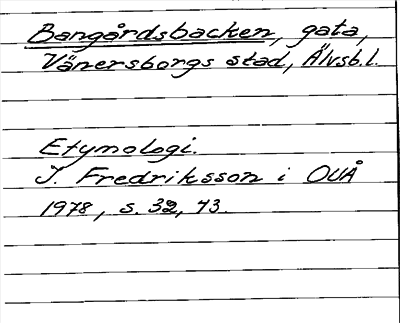 Bangårdsbacken, gata,
Vänersborgs stad, Älvsb.l.
Etymologi.
I. Fredriksson i OUÅ
1978, s. 32, 43.